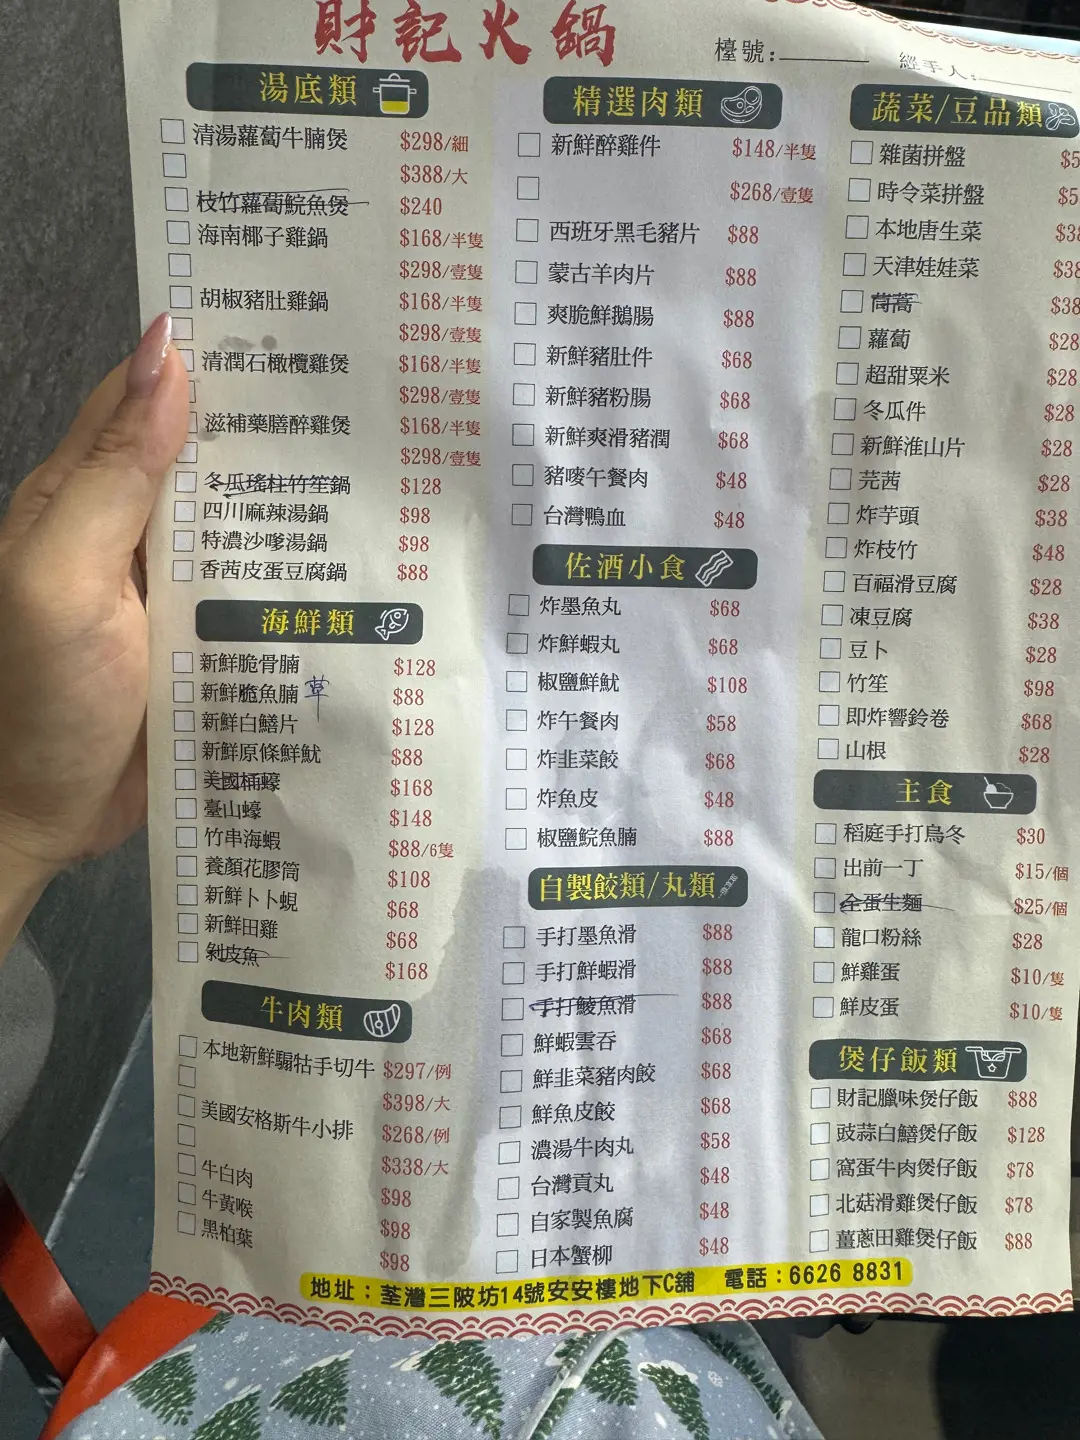 財記火鍋
檯號:
經手人:
湯底類
清湯蘿蔔牛腩煲 $298/細
$388/大
枝竹蘿蔔鯇魚煲 $240
海南椰子雞鍋 $168/半隻
$298/壹隻
胡椒豬肚雞鍋 $168/半隻
$298/壹隻
清潤石橄欖雞煲 $168/半隻
$298/壹隻
滋補藥膳醉雞煲 $168/半隻
$298/壹隻
冬瓜瑤柱竹笙鍋 $128
四川麻辣湯鍋 $98
特濃沙嗲湯鍋 $98
香茜皮蛋豆腐鍋 $88
海鮮類
新鮮脆骨腩 $128
新鮮脆魚腩 草 $88
新鮮白鱔片 $128
新鮮原條鮮魷 $88
美國桶蠔 $168
臺山蠔 $148
竹串海蝦 $88/6隻
養顏花膠筒 $108
新鮮卜卜蜆 $68
新鮮田雞 $68
剝皮魚 $168
牛肉類
本地新鮮騸牯手切牛 $297/例
$398/大
美國安格斯牛小排 $268/例
$338/大
牛白肉 $98
牛黃喉 $98
黑柏葉 $98
精選肉類
新鮮醉雞件 $148/半隻
$268/壹隻
西班牙黑毛豬片 $88
蒙古羊肉片 $88
爽脆鮮鵝腸 $88
新鮮豬肚件 $68
新鮮豬粉腸 $68
新鮮爽滑豬潤 $68
豬嘜午餐肉 $48
台灣鴨血 $48
佐酒小食
炸墨魚丸 $68
炸鮮蝦丸 $68
椒鹽鮮魷 $108
炸午餐肉 $58
炸韭菜餃 $68
炸魚皮 $48
椒鹽鯇魚腩 $88
自製餃類/丸類
手打墨魚滑 $88
手打鮮蝦滑 $88
手打鯪魚滑 $88
鮮蝦雲吞 $68
鮮韭菜豬肉餃 $68
鮮魚皮餃 $68
濃湯牛肉丸 $58
台灣貢丸 $48
自家製魚腐 $48
日本蟹柳 $48
蔬菜/豆品類
雜菌拼盤 $5
時令菜拼盤 $5
本地唐生菜 $38
天津娃娃菜 $38
茼蒿 $38
蘿蔔 $28
超甜粟米 $28
冬瓜件 $28
新鮮淮山片 $28
芫茜 $28
炸芋頭 $38
炸枝竹 $48
百福滑豆腐 $28
凍豆腐 $38
豆卜 $28
竹笙 $98
即炸響鈴卷 $68
山根 $28
主食
稻庭手打烏冬 $30
出前一丁 $15/個
全蛋生麵 $25/個
龍口粉絲 $28
鮮雞蛋 $10/隻
鮮皮蛋 $10/隻
煲仔飯類
財記臘味煲仔飯 $88
豉蒜白鱔煲仔飯 $128
窩蛋牛肉煲仔飯 $78
北菇滑雞煲仔飯 $78
薑蔥田雞煲仔飯 $88
地址：荃灣三陂坊14號安安樓地下C舖 電話：6626 8831